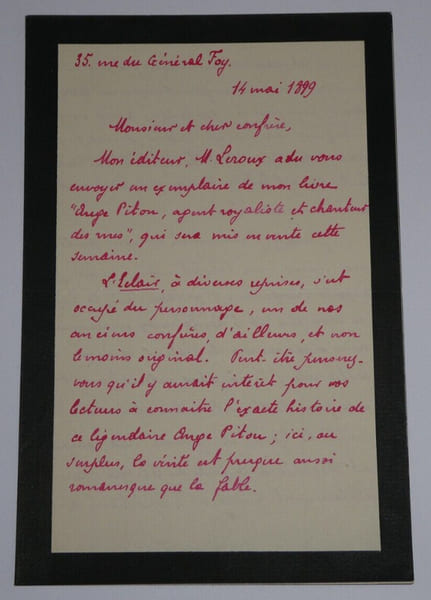 35. rue du Général Foy.
14 mai 1899
Monsieur et cher confrère,
Mon éditeur, M. Leroux a du vous
envoyer un exemplaire de mon livre
"Ange Pitou, agent royaliste et chanteur
des rues", qui sera mis en vente cette
semaine.
L'Eclair, à diverses reprises, s'est
occupé du personnage, un de nos
anciens confrères, d'ailleurs, et non
le moins original. Peut-être pensez-
vous qu'il y aurait intérêt pour vos
lecteurs à connaitre l'exacte histoire de
ce légendaire Ange Pitou ; ici, au
surplus, la vérité est presque aussi
romanesque que la fable.